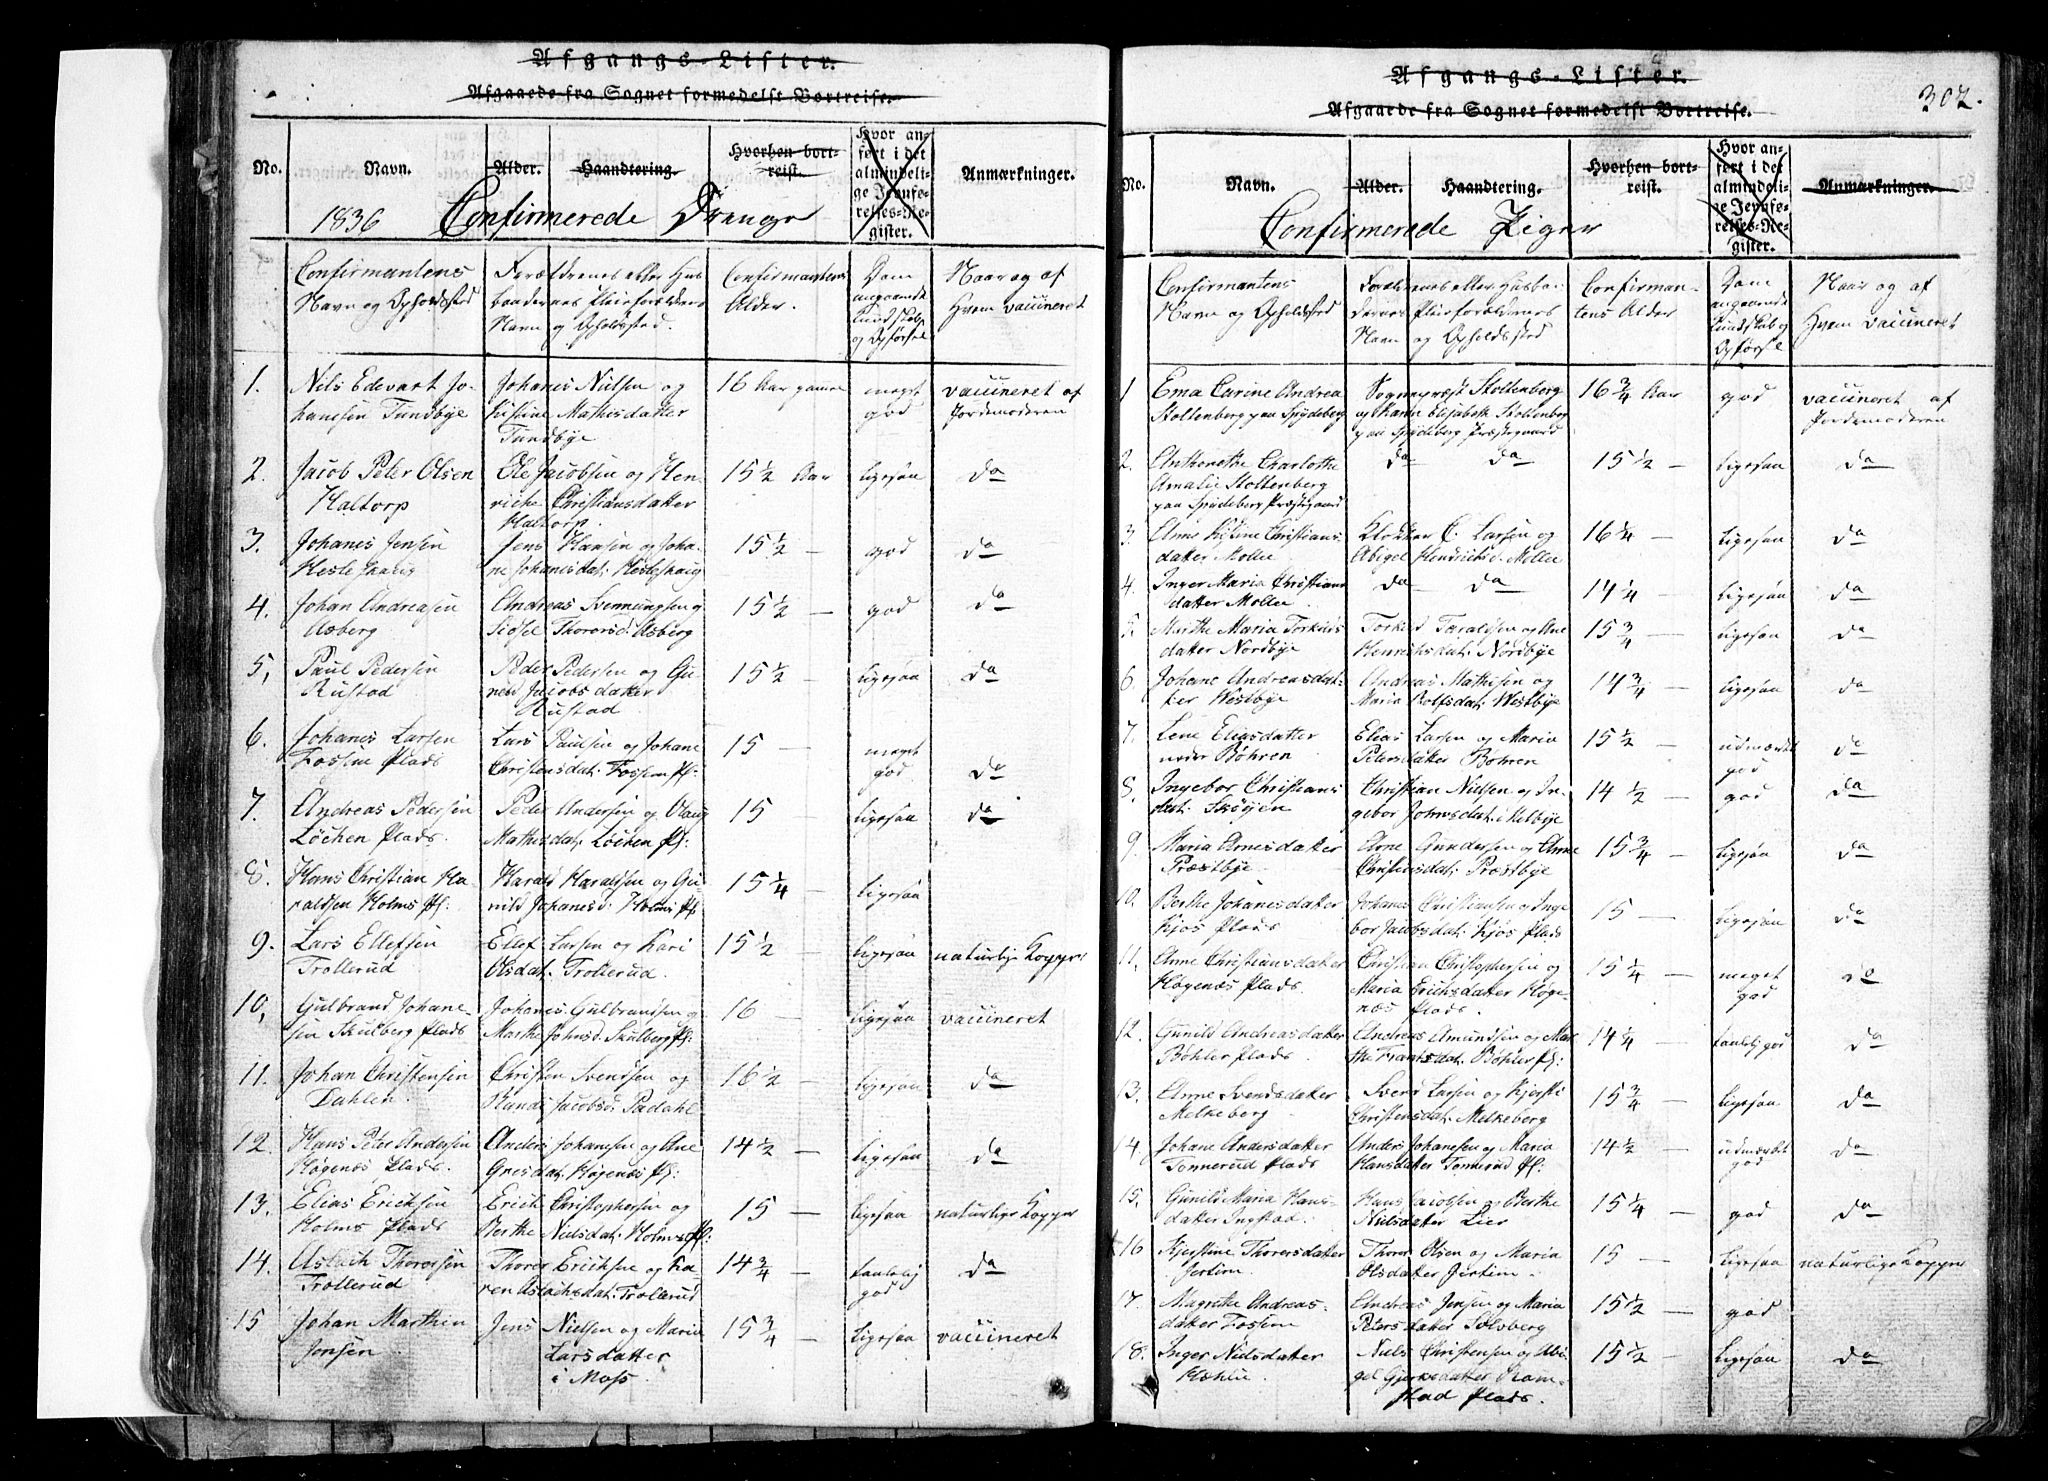 Afgangs-Lister.
Afgaaede fra Sognet formedelst Bortreise.
No. Navn. Alder. Haandtering. Hvorhen bortreist. Hvor anført i det almindelige Jevnførelses-Register. Anmærkninger.
1836 Confirmerede Drenge
Confirmantens Navn og Opholdssted
Forældrenes eller Husbondernes Pleieforældrenes Navn og Opholdssted.
Confirmantens Alder.
Dom angaaende Kundskab og Opførsel
Naar og af Hvem vaccineret
1. Nils Edevart Johansen Tundbye
Johanes Nielsen og Kistine Mathisdatter Tundbye
16 Aar gamel meget god vaccineret af Jordemoderen
2. Jacob Peter Olsen Haltorp
Ole Jacobsen og Henriche Christiansdatter Haltorp.
15 ½ Aar ligesaa da
3. Johanes Jensen Hesleskaug
Jens Hansen og Johane Johanesdat: Hesleskaug
15 ½ — god da
4. Johan Andreasen Asberg
Andreas Svennungsen og Sidsel Thorersd: Asberg
15 ½ — god da
5, Paul Pedersen Rustad
Peder Pedersen og Guneld Jacobsdatter Rustad
15 ½ — ligesaa da
6. Johanes Larsen Fossen Plads
Lars Paulsen og Johane Christensdat: Fossen Pl:
15 — meget god da
7. Andreas Pedersen Løchen Plads.
Peder Andersen og Olaug Mathisdat: Løchen Pl:
15 — ligesaa da
8. Hans Christian Haraldsen Holms Pl:
Harald Haraldsen og Gunild Johanesd: Holms Pl
15 ¼ — ligesaa
9. Lars Ellefsen Trollerud
Ellef Larsen og Kari Olsdat: Trollerud.
15 ½ — ligesaa naturlige Kopper
10, Gulbrand Johanesen Skulberg Plads
Johanes Gulbrandsen og Marthe Johnsd: Skulberg Pl:
16 — ligesaa vaccineret
11. Johan Christensen Dahlen.
Christen Svendsen og Randi Jacobsd: Padahl
16 ½ — ligesaa da
12. Hans Peter Andersen Høgenæs Plads.
Anders Johansen og Ane Gresdat: Høgenæs Pl:
14 ½ — ligesaa da
13. Elias Ericksen Holms Plads
Erich Christophersen og Berthe Nielsdat: Holms Pl:
15 — ligesaa naturlige Kopper
14. Aslach Thorersen Trollerud
Thorer Ericksen og Karen Aslachsdat: Trollerud
14 ¾ — taalelig god da
15 Johan Marthin Jensen
Jens Nielsen og Maria Larsdatter i Moss.
15 ¾ — ligesaa vaccineret
Afgangs-Lister.
Afgaaede fra Sognet formedelst Bortreise.
307.
No. Navn. Alder. Haandtering. Hvorhen bortreist. Hvor anført i det almindelige Jevnførelses-Register. Anmærkninger.
Confirmerede Piger
Confirmantens Navn og Opholdssted
Forældrenes eller Husbondernes Pleieforældrenes Navn og Opholdssted
Confirmantens Alder
Dom angaaende Kundskab og Opførsel
Naar og af Hvem vaccineret
1 Ema Carine Andrea Stoltenberg paa Spydeberg
Sognepræst Stoltenberg og Karen Elisabeth Stoltenberg paa Spydeberg Præstegaard
16 ¾ Aar god vaccineret af Jordemoderen
2. Anthenethe Charlothe Amalie Stoltenberg paa Spydeberg Præstegaard
da da
15 ½ — ligesaa da
3. Anne Kistine Christiansdatter Molle
Klokker C. Larsen og Abigel Henrichsd: Mollee
16 ¼ — ligesaa da
4. Inger Maria Christiansdatter Mollee.
da — da
14 ¼ — ligesaa da
5. Marthe Maria Torkildsdatter Nordbye
Torkild Taraldsen og Ane Henrichsdat: Nordbye
15 ¾ — ligesaa da
6. Johane Andreasdatter Westbye
Andreas Mathisen og Maria Rolfsdat: Westbye
14 ¾ — ligesaa da
7. Lene Eliasdatter nedre Bøhren
Elias Larsen og Maria Petersdatter Bøhren
15 ½ — udmærket god da
8. Ingebor Christiansdat: Skøyen
Christian Nielsen og Ingebor Johnsdat: i Melbye
14 ½ — god da
9. Maria Arnesdatter Præstbye
Arne Gundersen og Anne Christensdat: Præstbye
15 ¾ — ligesaa da
10. Berthe Johanesdatter Kjos Plads
Johanes Christiansen og Ingebor Jacobsdat: Kjos Plads
15 — ligesaa da
11. Anne Christiansdatter Høgenæs Plads.
Christian Christophersen og Maria Erichsdatter Høgenæs Plads.
15 ¼ — meget god do
12. Gunild Andreasdatter Bøhler Plads.
Andreas Amundsen og Marthe Frantsdat: Bøhler Pl:
14 ¼ — taalelig god da
13. Anne Svendsdatter Melkeberg
Svend Larsen og Kjersti Christensdat: Melkeberg
15 ¾ — ligesaa da
14. Johane Andersdatter Tonnerud Plads
Anders Johansen og Maria Hansdatter Tonnerud Pl:
14 ½ — udmærket god da
15. Gunild Maria Hansdatter Ingstad.
Hans Jacobsen og Berthe Nielsdatter Lier
15 ¼ — god da
16 Kjerstine Thorersdatter Jertim.
Thorer Olsen og Maria Olsdatter Jertim.
15 — ligesaa naturlige Kopper
17. Magrethe Andreasdatter Fossen
Andreas Jensen og Maria Petersdatter Solsberg
15 ½ — god
18. Inger Nielsdatter Hæhlie
Niels Christensen og Abigel Gjersdatter Ramstad Plads.
15 ½ — ligesaa da